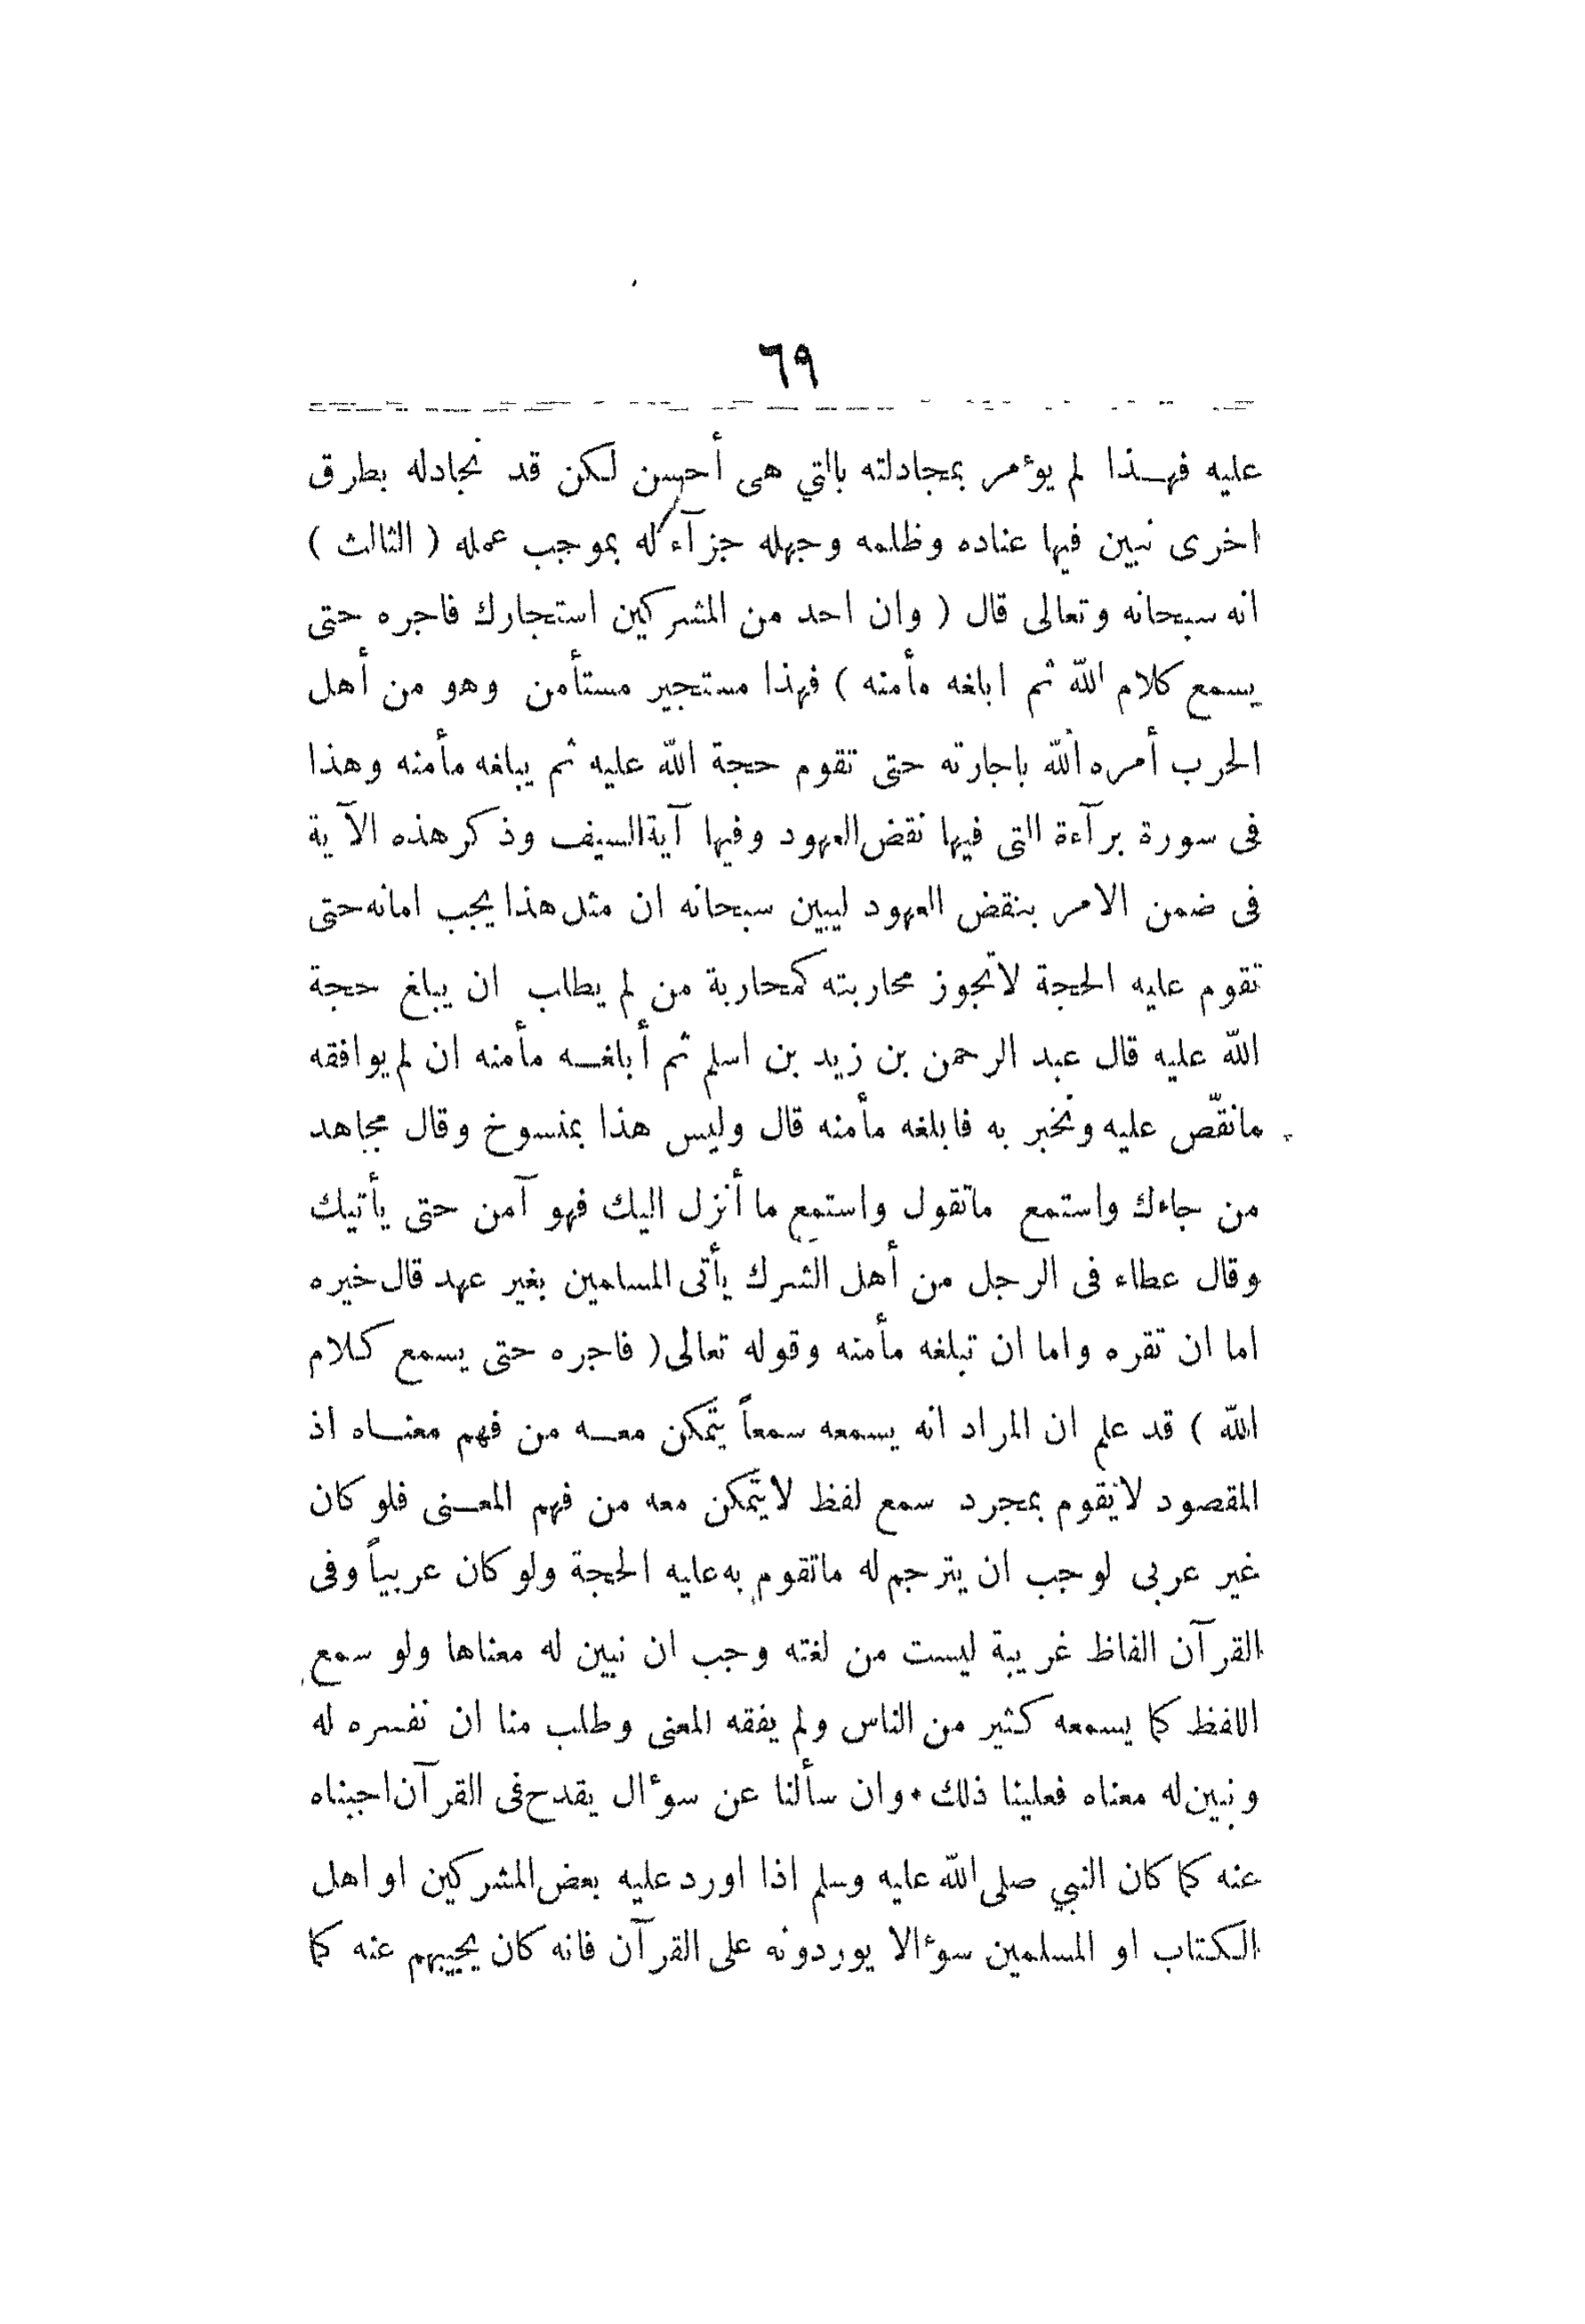 ٦٩
عليه فهذا لم يؤمر بمجادلته بالتي هى أحسن لكن قد نجادله بطرق
اخرى نبين فيها عناده وظلمه وجهله جزآء له بموجب عمله ( الثالث )
انه سبحانه وتعالى قال ( وان احد من المشركين استجارك فاجره حتى
يسمع كلام الله ثم ابلغه مأمنه ) فهذا مستجير مستأمن وهو من أهل
الحرب أمره الله باجارته حتى تقوم حجة الله عليه ثم يبلغه مأمنه وهذا
فى سورة برآءة التى فيها نقض العهود وفيها آية السيف وذكر هذه الآية
فى ضمن الامر بنقض العهود ليبين سبحانه ان مثل هذا يجب امانه حتى
تقوم عليه الحجة لاتجوز محاربته كمحاربة من لم يطلب ان يبلغ حجة
الله عليه قال عبد الرحمن بن زيد بن اسلم ثم أبلغه مأمنه ان لم يوافقه
مانقّص عليه ونخبر به فابلغه مأمنه قال وليس هذا بمنسوخ وقال مجاهد
من جاءك واستمع ماتقول واستمع ما أنزل اليك فهو آمن حتى يأتيك
وقال عطاء فى الرجل من أهل الشرك يأتى المسلمين بغير عهد قال خيره
اما ان تقره واما ان تبلغه مأمنه وقوله تعالى ( فاجره حتى يسمع كلام
الله ) قد علم ان المراد انه يسمعه سمعاً يتمكن معه من فهم معناه اذ
المقصود لايقوم بمجرد سمع لفظ لايتمكن معه من فهم المعنى فلو كان
غير عربى لوجب ان يترجم له ماتقوم به عليه الحجة ولو كان عربياً وفى
القرآن الفاظ غريبة ليست من لغته وجب ان نبين له معناها ولو سمع
اللفظ كما يسمعه كثير من الناس ولم يفقه المعنى وطلب منا ان نفسره له
ونبين له معناه فعلينا ذلك • وان سألنا عن سؤال يقدح فى القرآن اجبناه
عنه كما كان النبي صلى الله عليه وسلم اذا اورد عليه بعض المشركين او اهل
الكتاب او المسلمين سؤالا يوردونه على القرآن فانه كان يجيبهم عنه كما